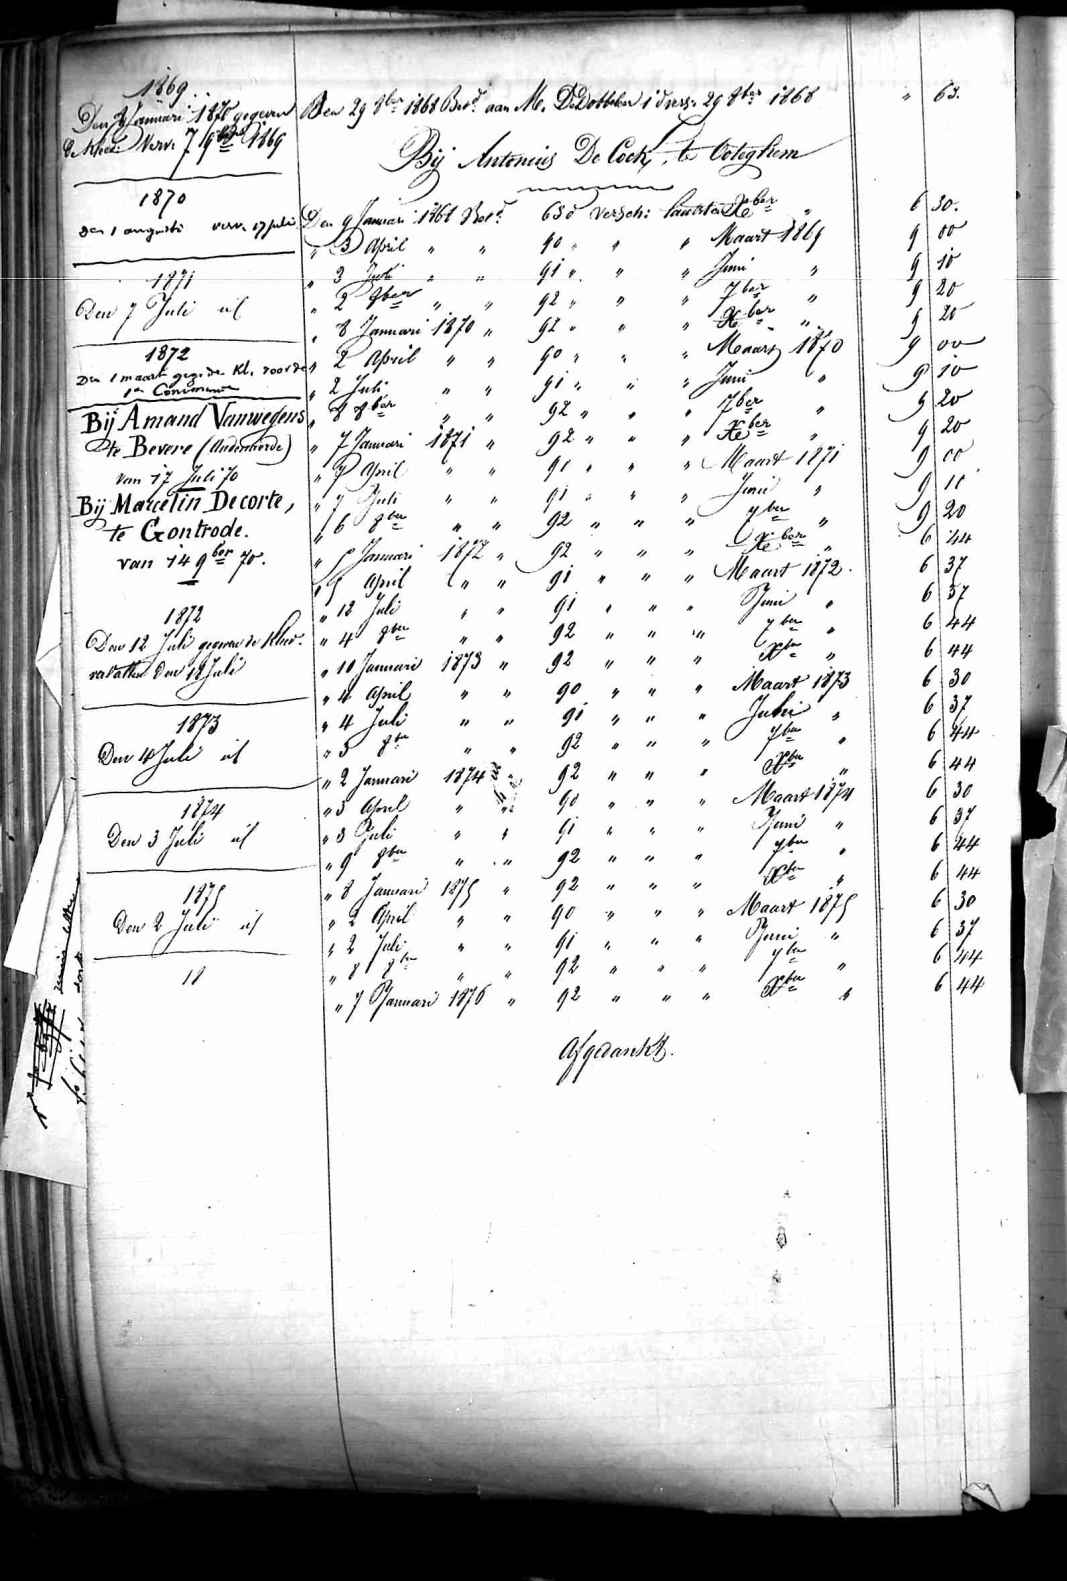 1869.
Den 8 Januari 1870 gegeven
de Kleed: Verv. 7 9ber 1869
1870
den 1 augusti verv. 17 juli
1871
Den 7 Juli id
1872
Den 1 maart geg. de Kl. voor de
1en Communie
Bij Amand Vanwegens
te Bevere (Audenaerde)
van 17 Juli 70
Bij Marcelin Decorte,
te Gontrode.
van 14 9ber 70.
1872
Den 12 Juli gegeven de Kleed.
den 12 Juli
1873
Den 4 Juli id
1874
Den 3 Juli id
1875
Den 2 Juli id
18
Den 29 8ber 1868 Bet.d aan M. DeDobbeler 1 dag 29 8ber 1868 " 63.
Bij Antonius De Cock, te Ooteghem
Den 9 Januari 1868 Bet.d 63 d versch: laatsten Xber " 6 30.
" 3 April " " 90 " " " Maart 1869 9 00
" 3 Juli " " 91 " " " Juni " 9 10
" 2 8ber " " 92 " " " 7ber " 9 20
" 8 Januari 1870 " 92 " " " Xber " 9 20
" 2 April " " 90 " " " Maart 1870 9 00
" 2 Juli " " 91 " " " Juni " 9 10
" 8 8ber " " 92 " " " 7ber " 9 20
" 7 Januari 1871 " 92 " " " Xber " 9 20
" 7 April " " 90 " " " Maart 1871 9 00
" 7 Juli " " 91 " " " Juni " 9 10
" 6 8ber " " 92 " " " 7ber " 9 20
" 5 Januari 1872 " 92 " " " Xber " 6 44
" 5 April " " 91 " " " Maart 1872. 6 37
" 12 Juli " " 91 " " " Juni " 6 37
" 4 8ber " " 92 " " " 7ber " 6 44
" 10 Januari 1873 " 92 " " " Xber " 6 44
" 4 April " " 90 " " " Maart 1873 6 30
" 4 Juli " " 91 " " " Juni " 6 37
" 3 8ber " " 92 " " " 7ber " 6 44
" 2 Januari 1874 " 92 " " " Xber " 6 44
" 3 April " " 90 " " " Maart 1874 6 30
" 3 Juli " " 91 " " " Juni " 6 37
" 9 8ber " " 92 " " " 7ber " 6 44
" 8 Januari 1875 " 92 " " " Xber " 6 44
" 2 April " " 90 " " " Maart 1875 6 30
" 2 Juli " " 91 " " " Juni " 6 37
" 8 8ber " " 92 " " " 7ber " 6 44
" 7 Januari 1876 " 92 " " " Xber " 6 44
Afgedankt.